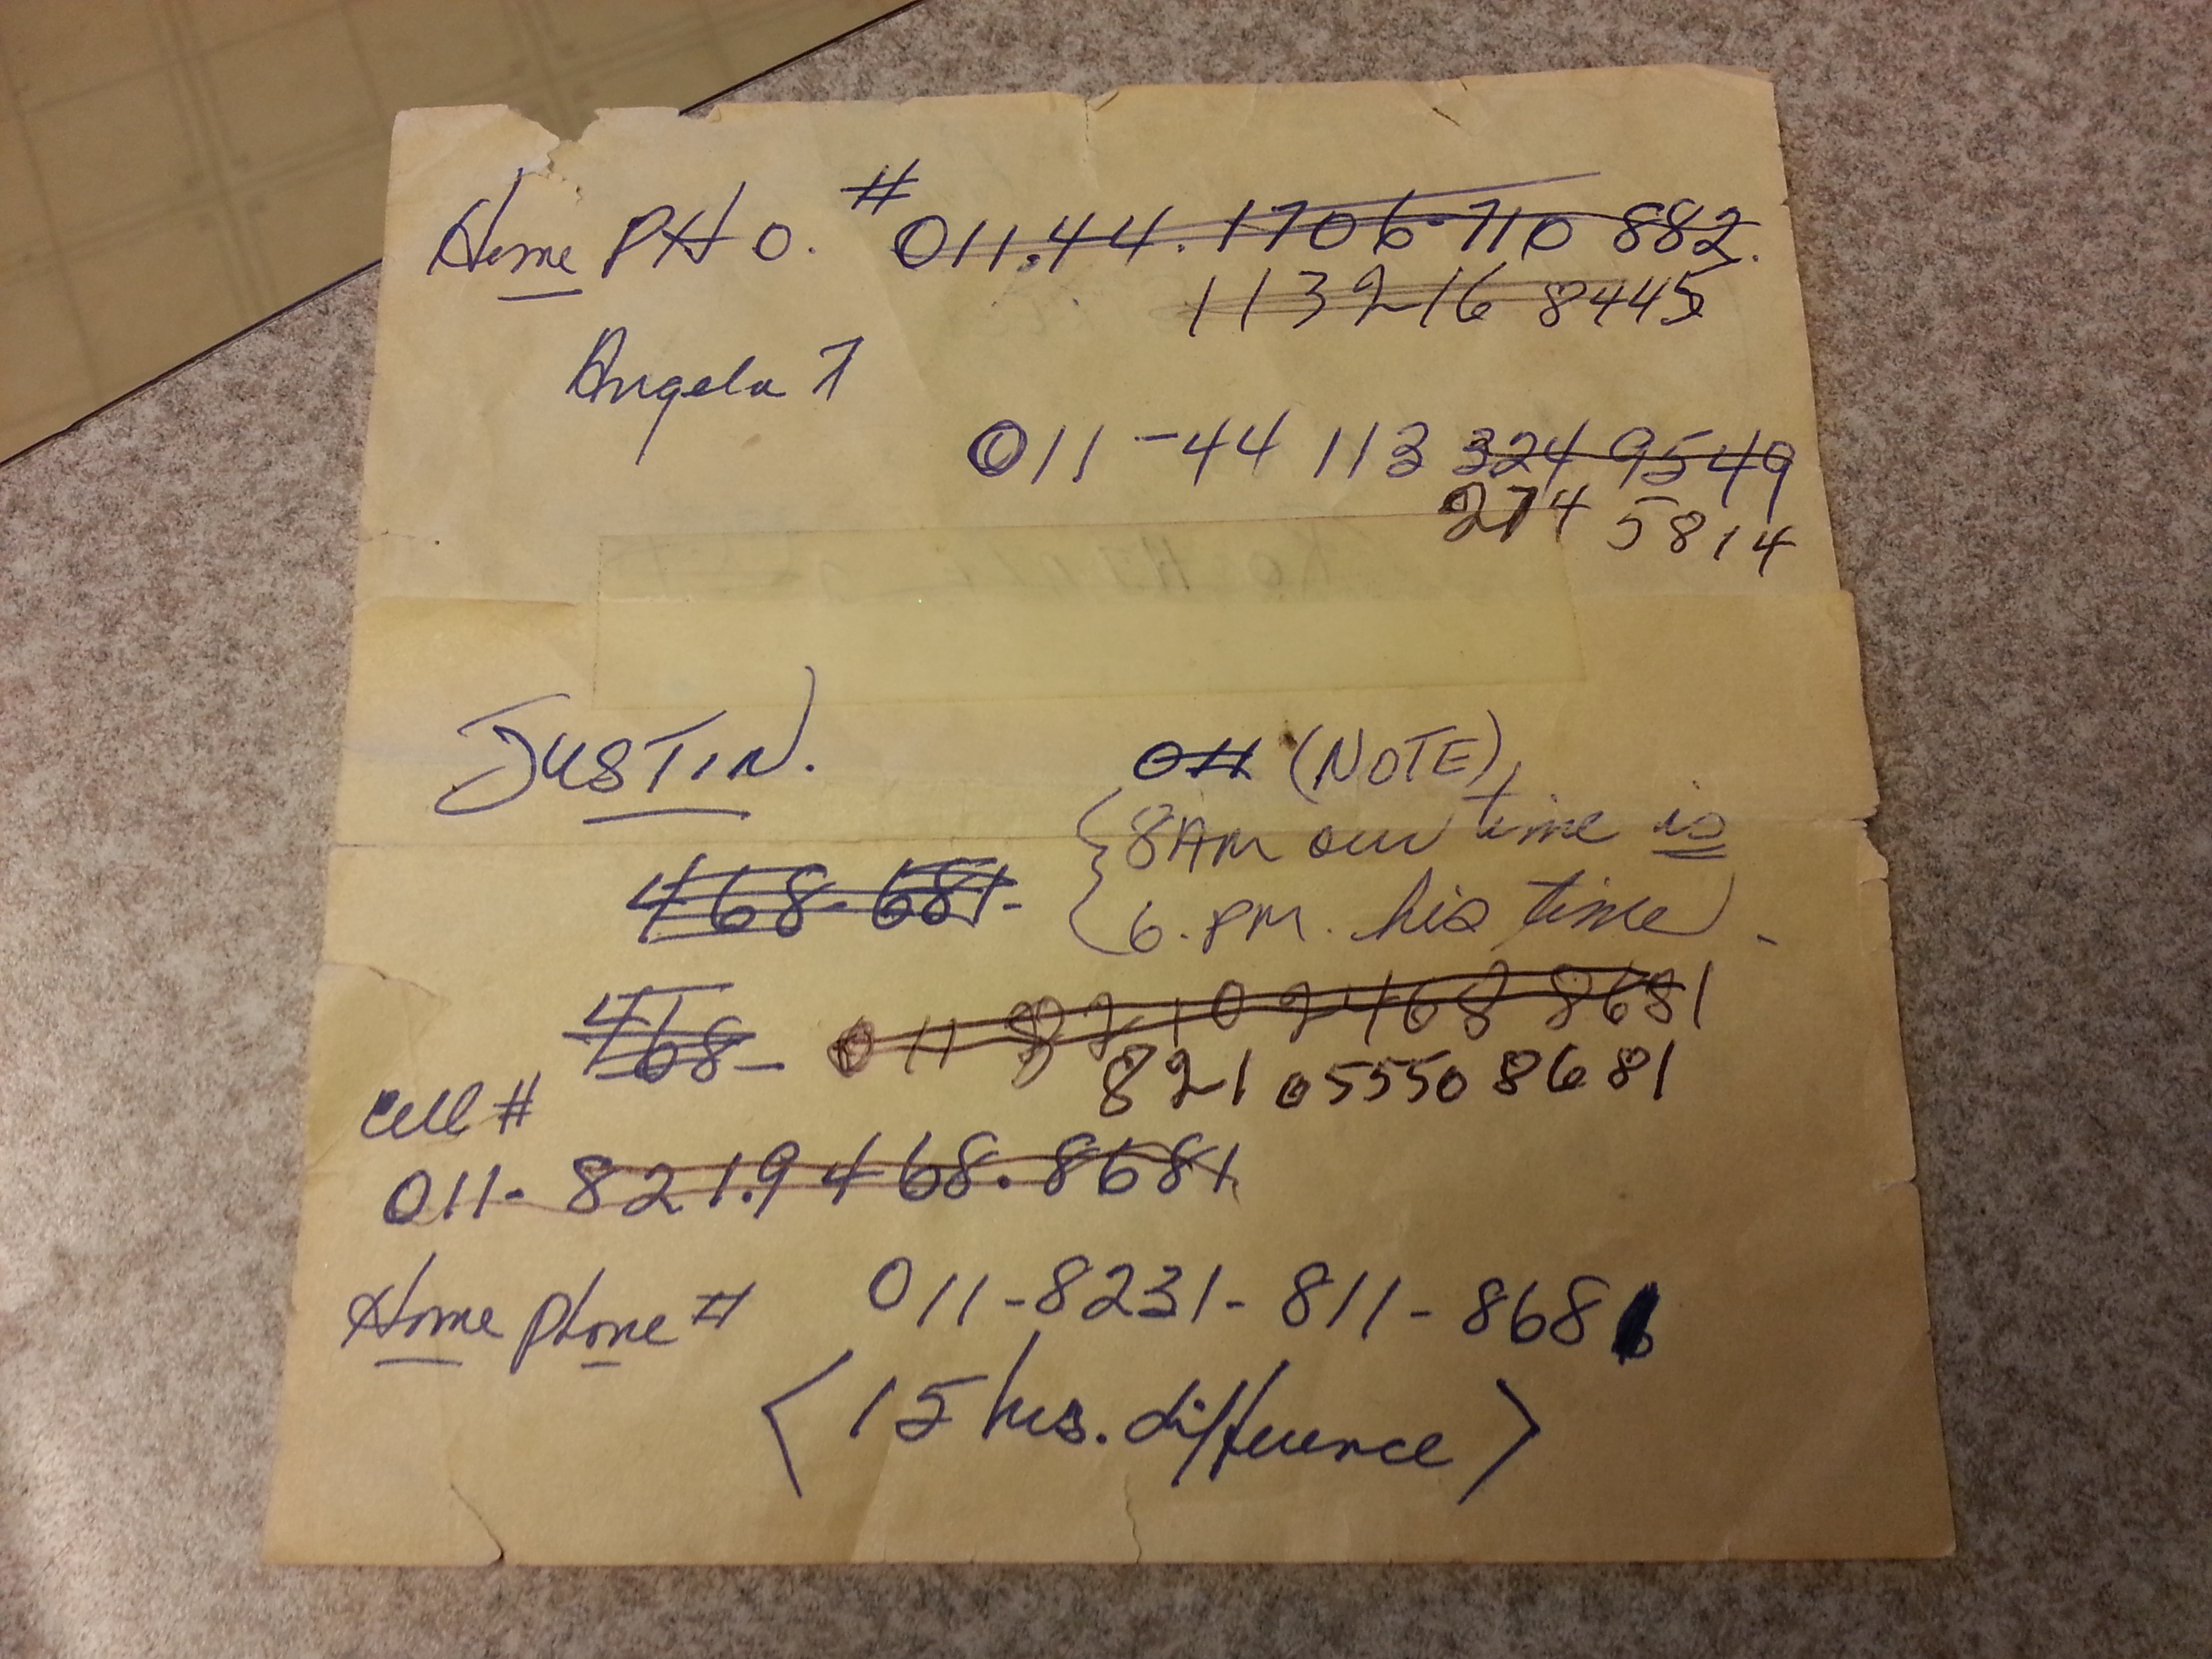 Home PHO. # 011.44.1706.710 882.
113 216 8445
Angela 7
011-44 113 324 9549
274 5814
JUSTIN.
011 (NOTE)
8AM our time is
6.PM. his time
468-681-
468-
011 82 10 2468 8681
821 05550 8681
Cell #
011-821.9468.8681
Home phone # 011-8231-811-8681
<15 hrs. difference>